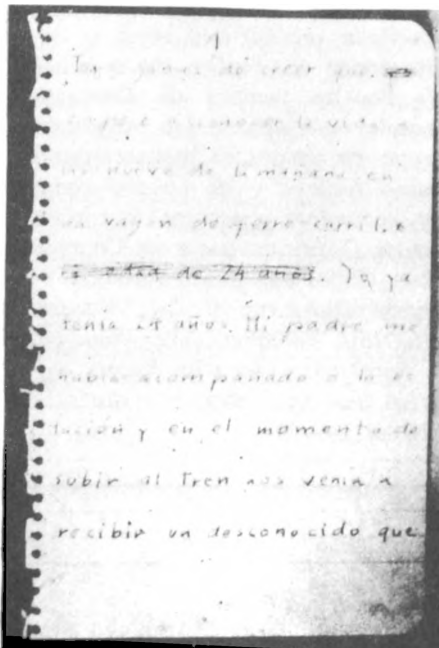 1
Las ganas de creer
Empecé a conocer la vida a
las nueve de la mañana en
un vagón de ferro-carril. e
de 24 años. Yo ya
tenia 24 años. Mi padre me
habia acompañado a la es
tación y en el momento de
subir al Tren nos venía a
recibir un desconocido que